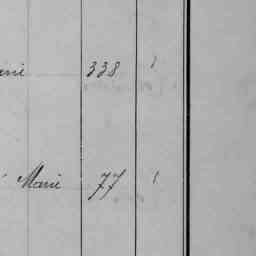 338 1
Marie 77 1